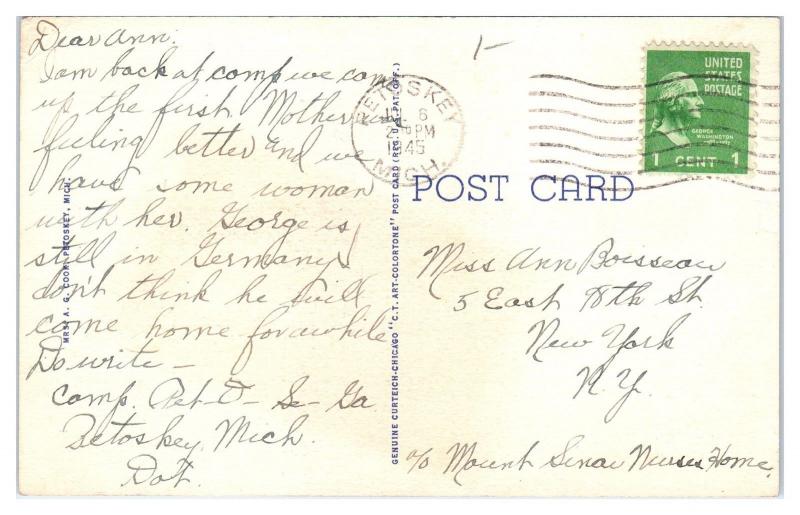 Dear Ann:
I am back at camp we came
up the first. Mother is
feeling better and we
have some woman
with her. George is
still in Germany
don't think he will
come home for awhile
Do write -
Camp Pet-O-Se-Ga
Petoskey, Mich.
Dot.
MRS. A. G. COOK, PETOSKEY, MICH.
GENUINE CURTEICH-CHICAGO "C.T. ART-COLORTONE" POST CARD (REG. U.S. PAT. OFF.)
1-
PETOSKEY
6
PM
1945
MICH.
UNITED
STATES
POSTAGE
GEORGE
WASHINGTON
1 CENT 1
POST CARD
Miss Ann Boisseau
5 East 98th St.
New York
N.Y.
c/o Mount Sinai Nurses Home.